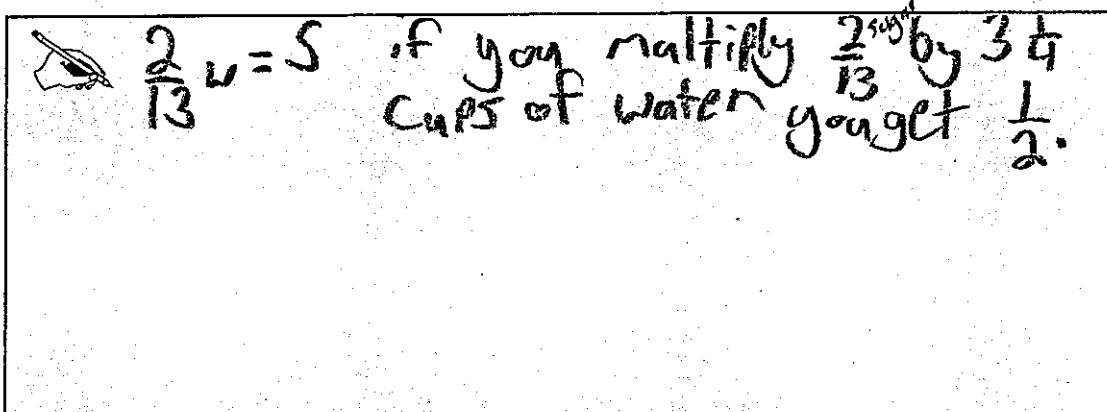 2/13 w = S if you maltiply 2/13 sugar by 3 1/4
cups of water you get 1/2.